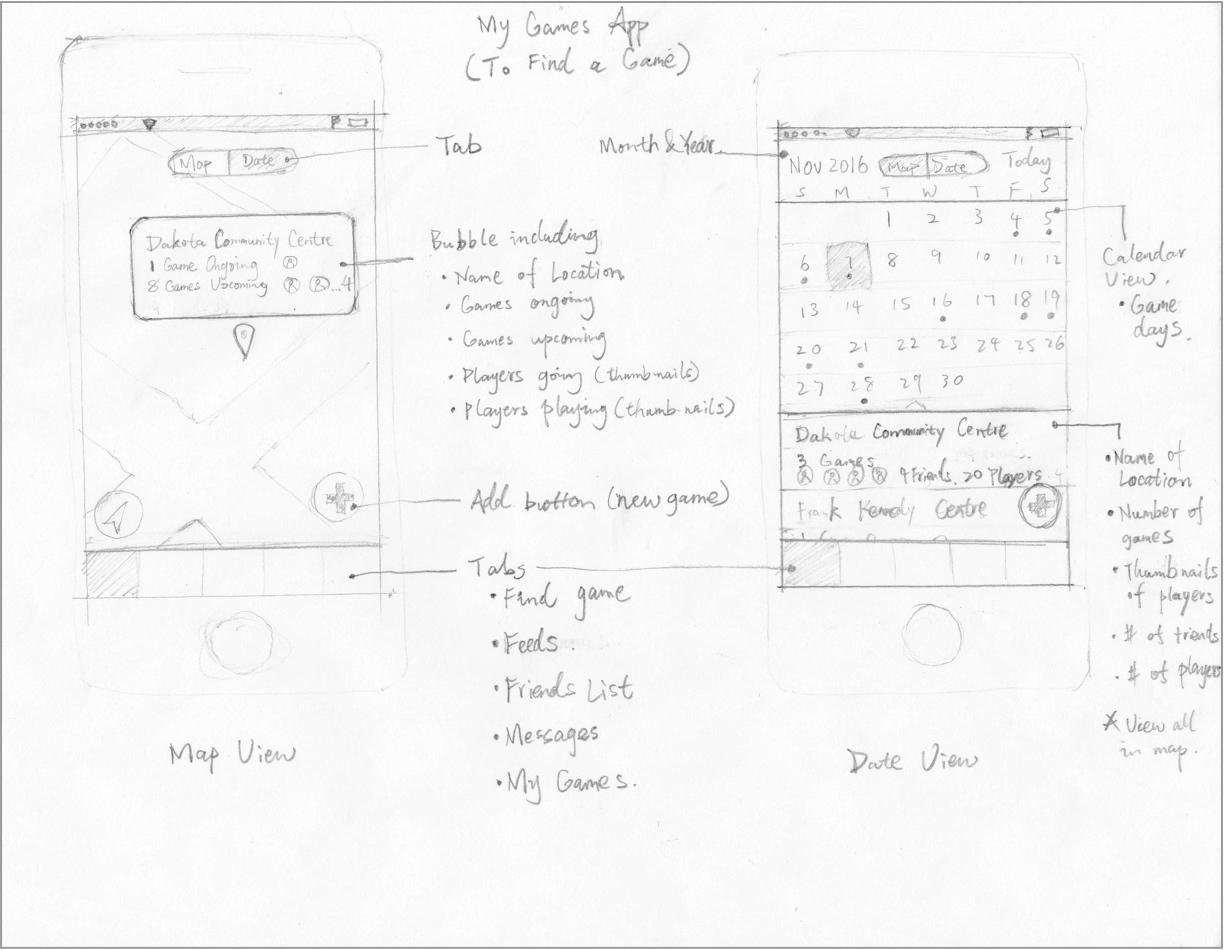 My Games App
(To Find a Game)
Map Date
Tab
Dakota Community Centre
1 Game Ongoing
8 Games Upcoming ...4
Bubble including
• Name of Location
• Games ongoing
• Games upcoming
• Players going (thumb-nails)
• Players playing (thumb-nails)
Add button (new game)
Tabs
• Find game
• Feeds.
• Friends List
• Messages
• My Games.
Map View
Month & Year
Nov 2016 Map Date Today
S M T W T F S
1 2 3 4 5
6 7 8 9 10 11 12
13 14 15 16 17 18 19
20 21 22 23 24 25 26
27 28 29 30
Dakota Community Centre
3 Games
4 Friends, 20 Players
Frank Kennedy Centre
Calendar
View.
• Game
days.
• Name of
Location
• Number of
games
• Thumbnails
of players
• # of friends
• # of players
* View all
in map.
Date View